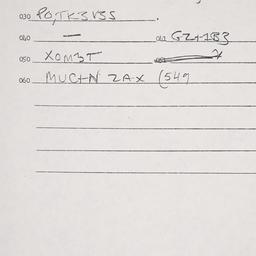 030 PO,TK3V3S.
040 — 041 GZ+1B3
050 XOM3T
060 MUC+N 2AX (549